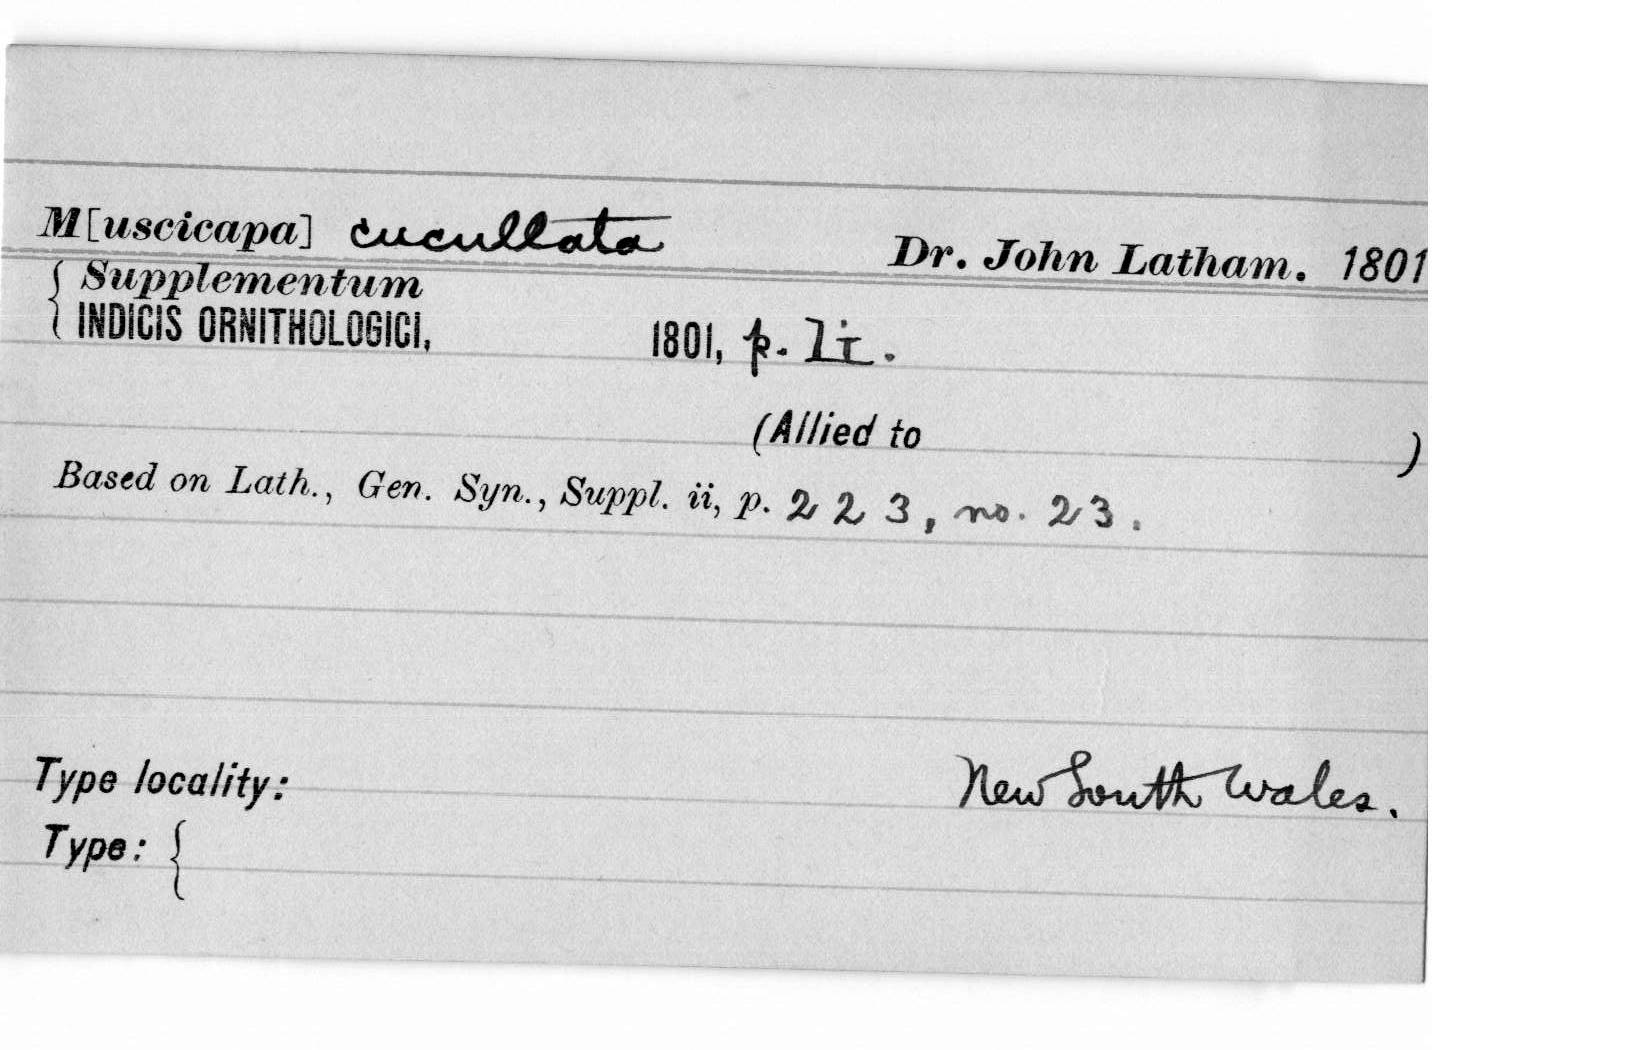 M[uscicapa] cucullata Dr. John Latham. 1801
{ Supplementum
INDICIS ORNITHOLOGICI, 1801, p. li.
(Allied to )
Based on Lath., Gen. Syn., Suppl. ii, p. 223, no. 23.
Type locality: New South Wales.
Type: {